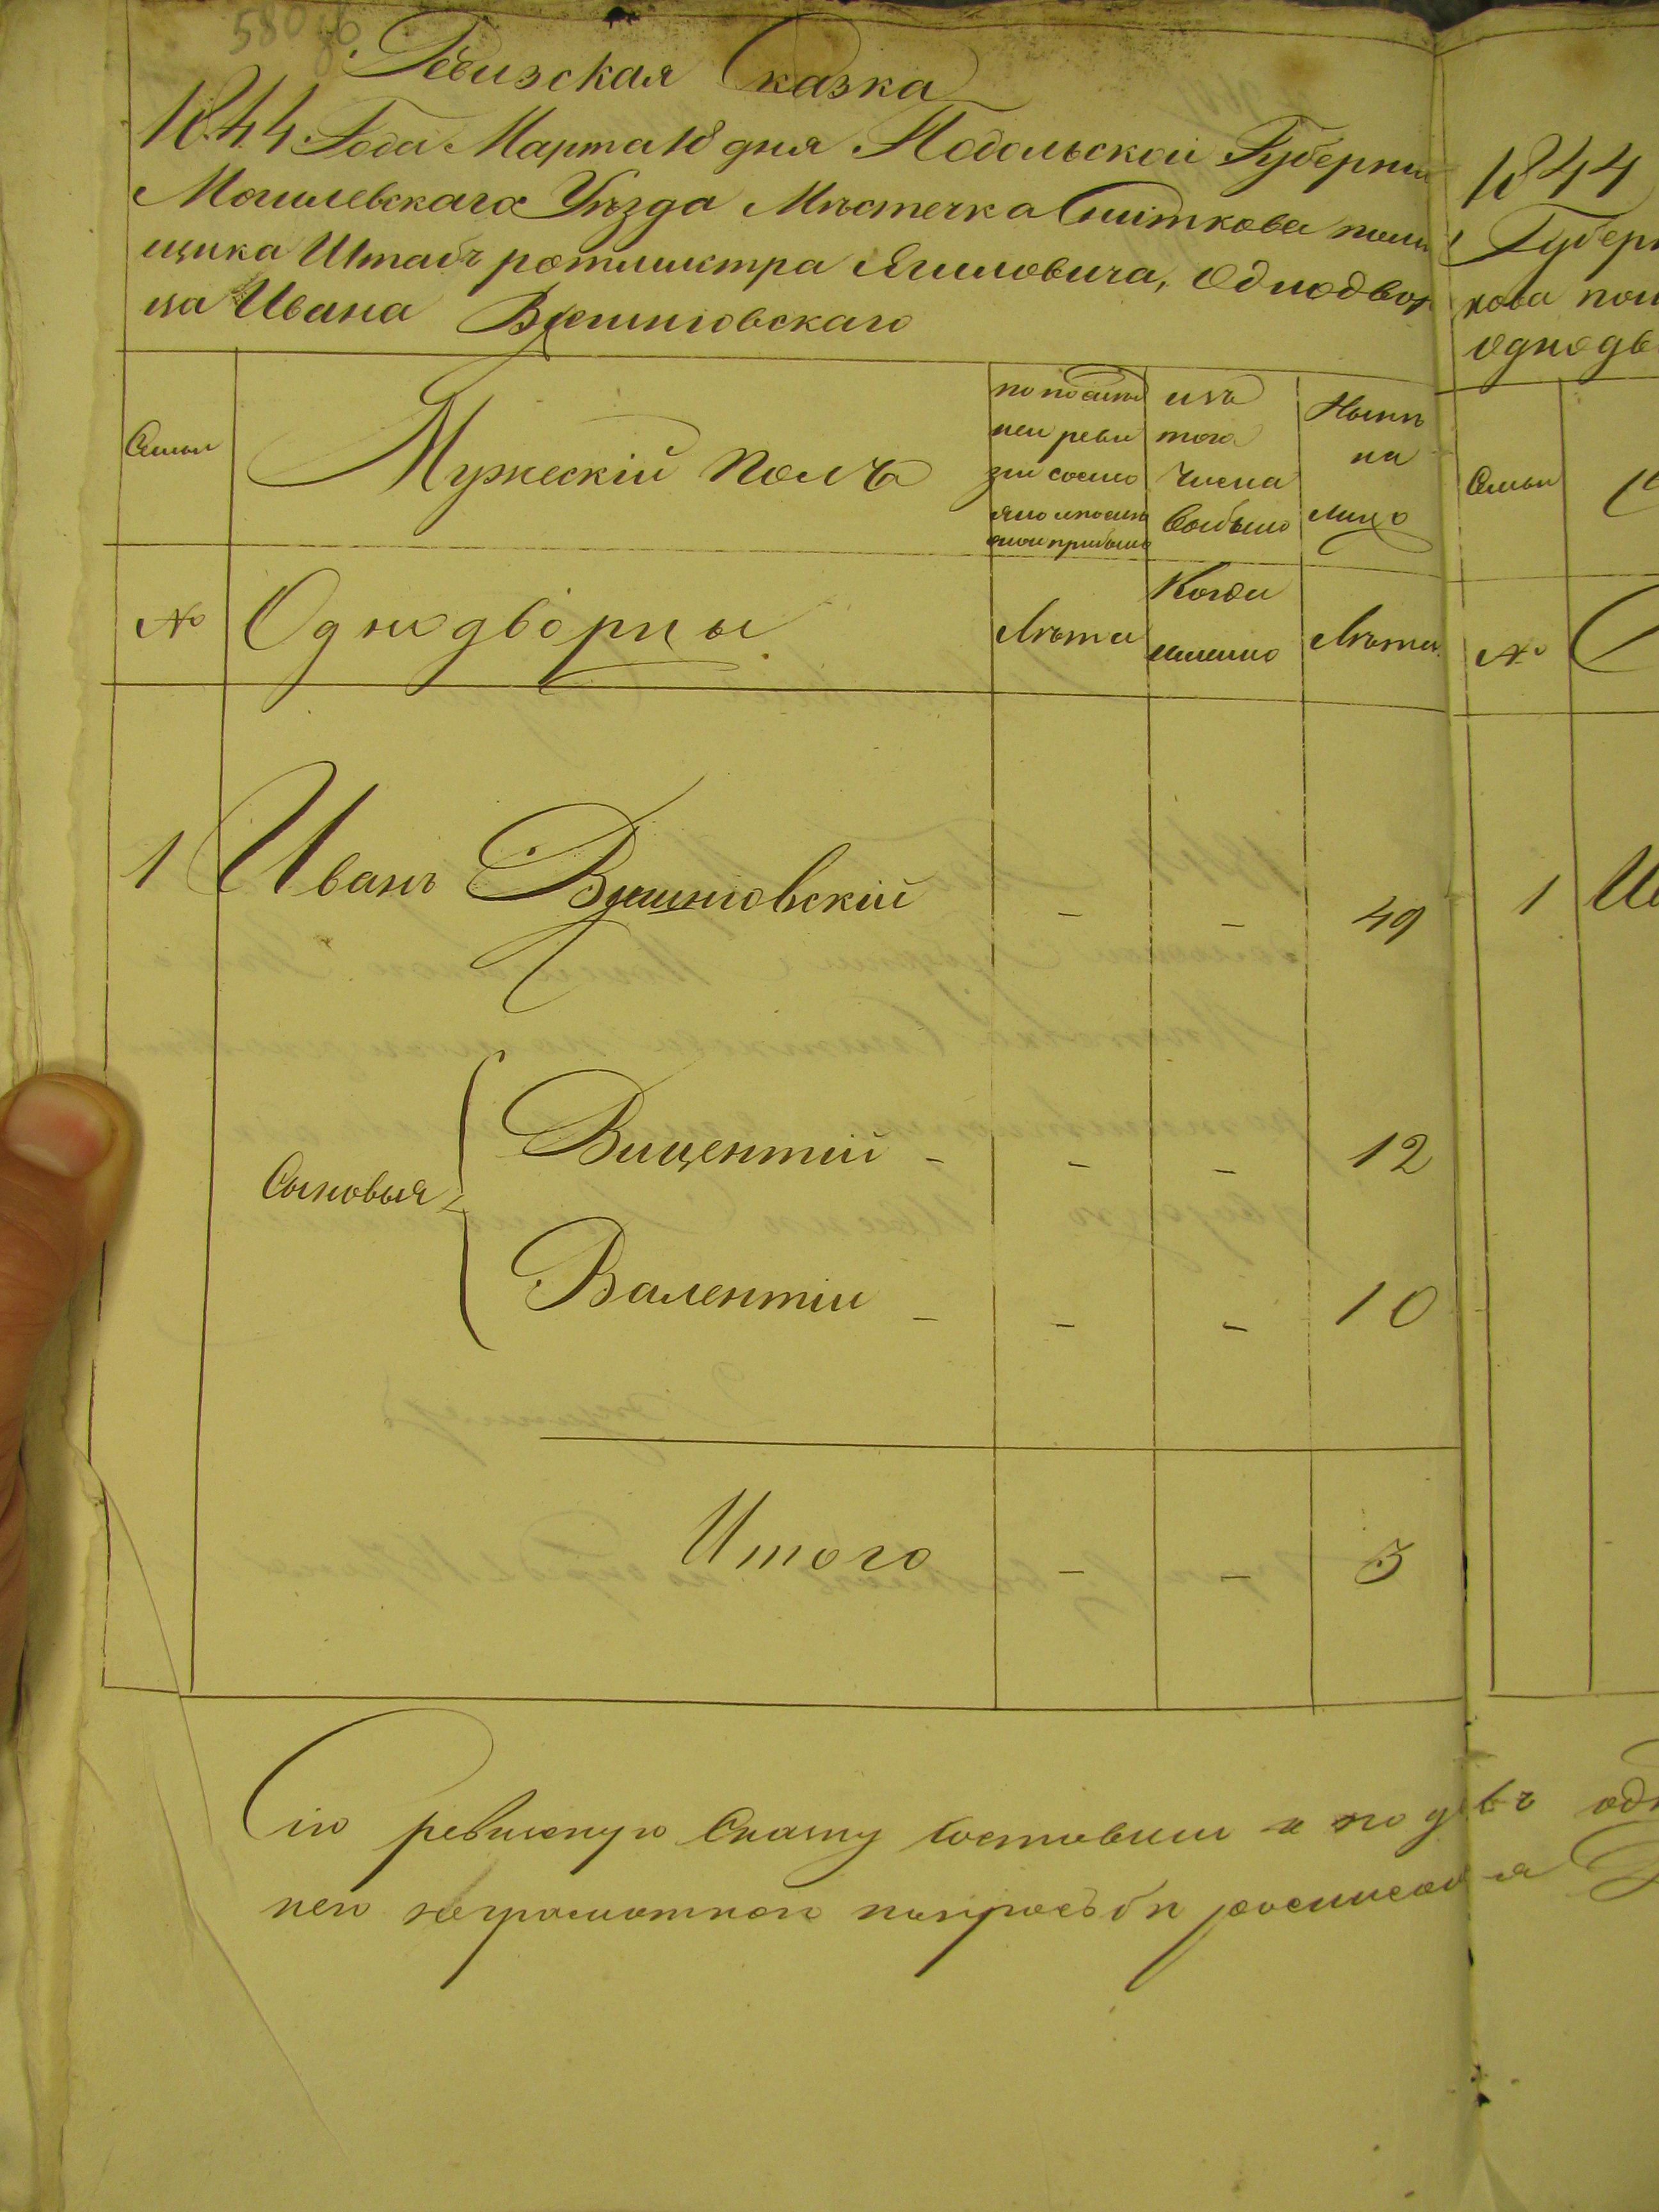 580 об
Ревизская Сказка
1844 Года Марта 18 дня Подольской Губернии
Могилевскаго Уѣзда Мѣстечка Снѣткова помѣ
щика Штабъ ротмистра Ягиловича, Однодвор
ца Ивана Вишнiовскаго
Семьи
Мужескiй полъ
по послѣд
ней реви
зiи состо
яло и послѣ
оной прибыло
изъ
того
числа
выбыло
Нынѣ
на
лицо
№
Однодворцы
Лѣта
Когда
именно
Лѣта
1
Иванъ Вишнiовскiй
-
-
49
Сыновья
Вицентiй -
-
-
12
Валентiй -
-
-
10
Итого
-
-
3
Сiю ревизскую Сказку составилъ и подавъ
неграмотного попросьбѣ росписался
1844
Губерн
кова пом
однодв
Семьи
№
1